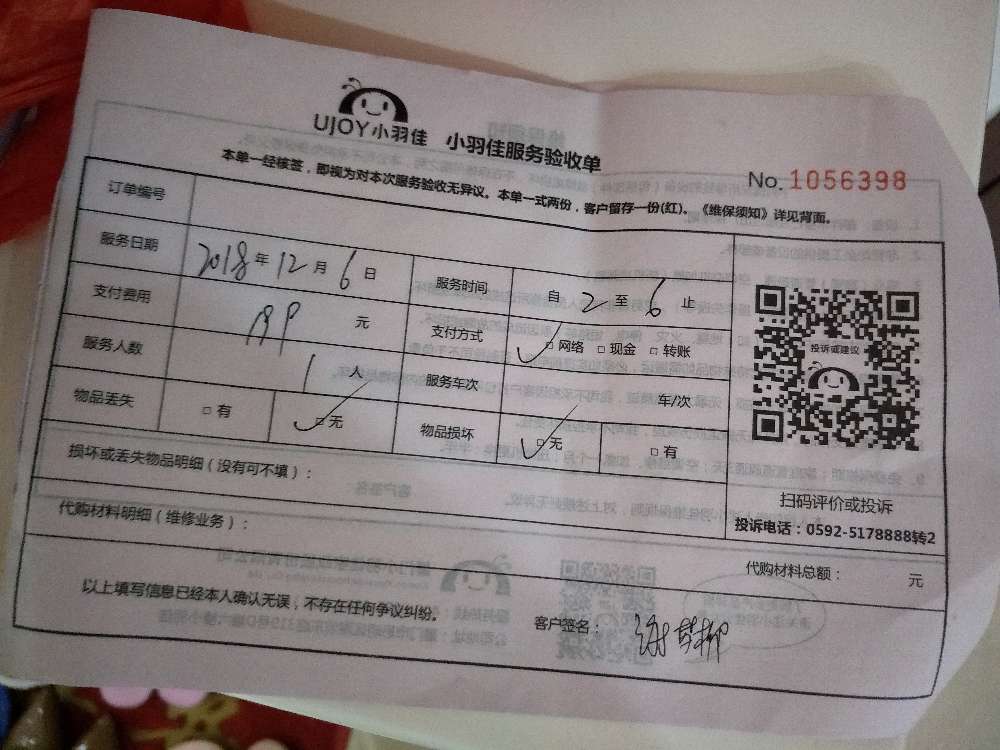 UJOY小羽佳 小羽佳服务验收单
本单一经核签，即视为对本次服务验收无异议。本单一式两份，客户留存一份(红)。《维保须知》详见背面。
No. 1056398
订单编号
服务日期 2018年12月6日 服务时间 自2至6止
支付费用 元 支付方式 □网络 □现金 □转账
服务人数 1人 服务车次 车/次
物品丢失 □有 □无 物品损坏 □无 □有
损坏或丢失物品明细（没有可不填）：
投诉或建议
扫码评价或投诉
投诉电话：0592-5178888转2
代购材料明细（维修业务）：
代购材料总额： 元
以上填写信息已经本人确认无误，不存在任何争议纠纷。
客户签名：